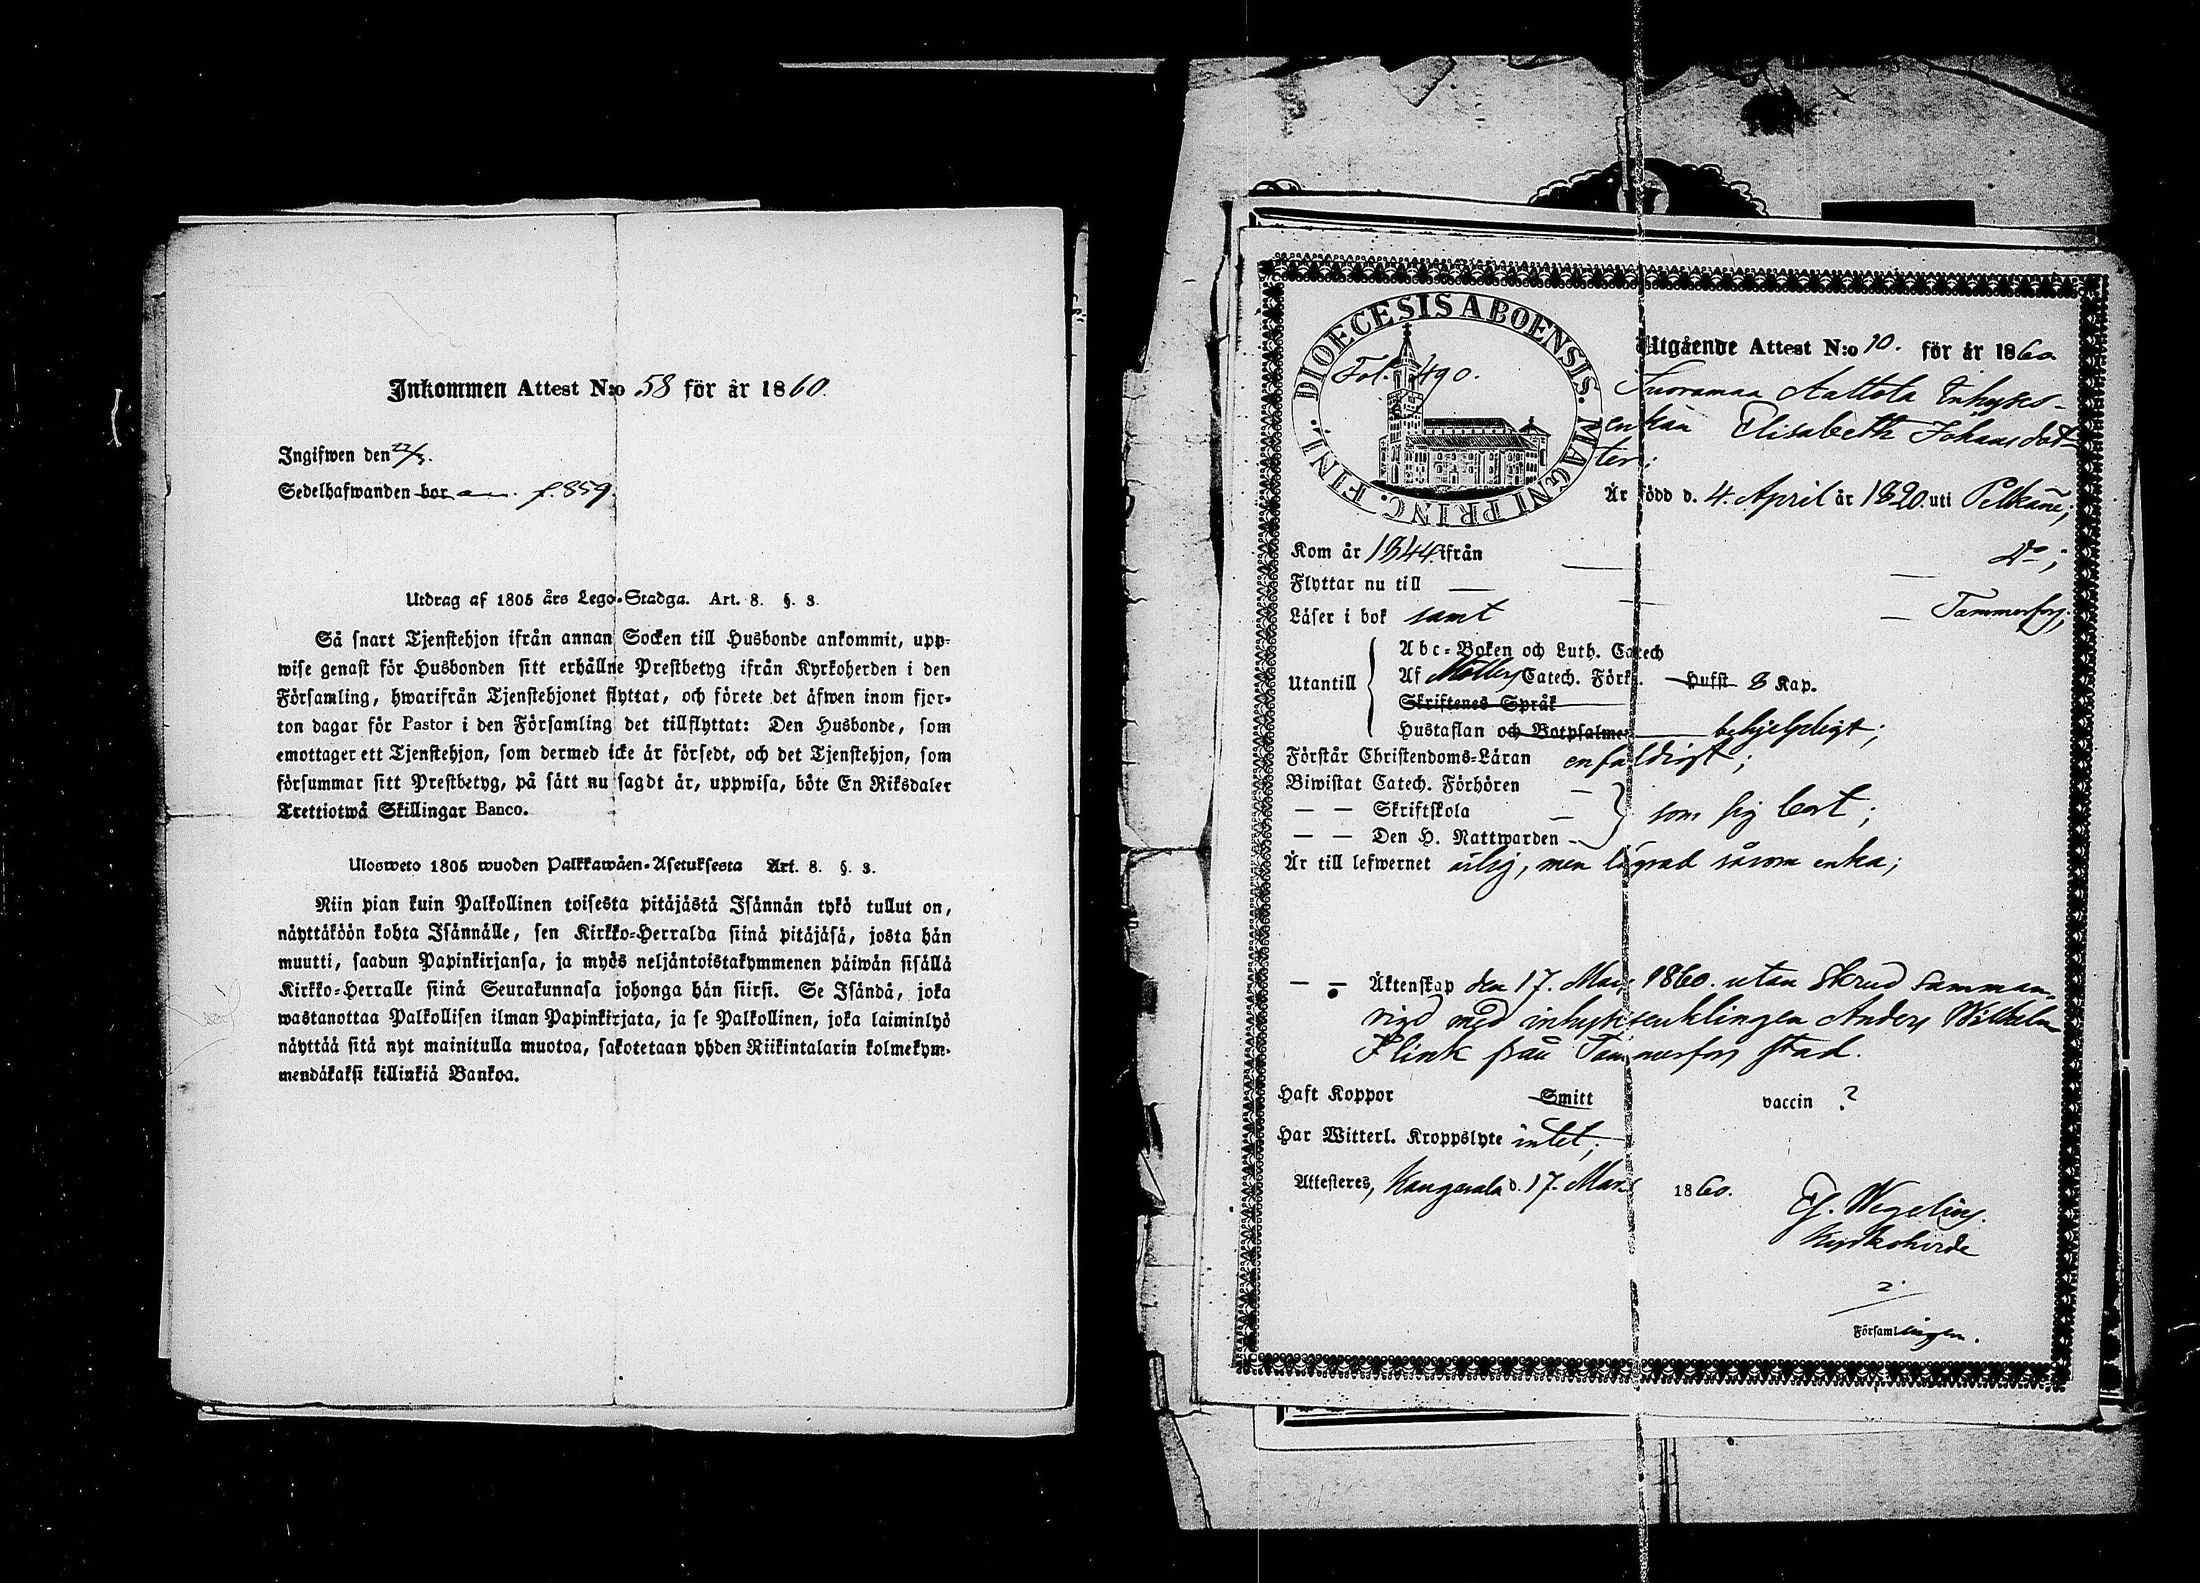 Inkommen Attest N:o 58 för år 1860.
Ingifwen den 22/3.
Sedelhafwanden bor an. f. 859.
Utdrag af 1805 års Lego-Stadga. Art. 8. §. 3.
Så snart Tjenstehjon ifrån annan Socken till Husbonde ankommit, upp-
wise genast för Husbonden sitt erhållne Prestbetyg ifrån Kyrkoherden i den
Församling, hwarifrån Tjenstehjonet flyttat, och förete det äfwen inom fjor-
ton dagar för Pastor i den Församling det tillflyttat: Den Husbonde, som
emottager ett Tjenstehjon, som dermed icke är försedt, och det Tjenstehjon, som
försummar sitt Prestbetyg, på sätt nu sagdt är, uppwisa, böte En Riksdaler
Trettiotwå Skillingar Banco.
Ulosweto 1805 wuoden Palkkawäen-Asetuksesta Art. 8. §. 3.
Niin pian kuin Palkollinen toisesta pitäjästä Isännän tykö tullut on,
näyttäköön kohta Isännälle, sen Kirkko-Herralda siinä pitäjäsä, josta hän
muutti, saadun Papinkirjansa, ja myös neljäntoistakymmenen päiwän sisällä
Kirkko-Herralle siinä Seurakunnasa johonga hän siirsi. Se Isändä, joka
wastanottaa Palkollisen ilman Papinkirjata, ja se Palkollinen, joka laiminlyö
näyttää sitä nyt mainitulla muotoa, sakotetaan yhden Riikintalarin kolmekym-
mendäkaksi killinkiä Bankoa.
DIOECESIS ABOENSIS. MAGNI PRINC. FINL.
Fol. 490.
Utgående Attest N:o 10. för år 1860
Suoramaa Aattola Inhyses-
enkan Elisabeth Johansdot-
ter;
Är född d. 4. April år 1820. uti Pelkäne;
Kom år 1844. ifrån — do;
Flyttar nu till — — Tammerfors;
Läser i bok samt
Abc-Boken och Luth. Catech
Utantill Af Möllers Catech. Förkl. Hufst 8 Kap.
Skriftenes Språk
Hustaflan och Botpsalmer behjelpligt;
Förstår Christendoms-Läran enfaldigt;
Biwistat Catech. Förhören —
— — Skriftskola — som sig bort;
— — Den H. Nattwarden —
Är till lefwernet ärlig, men lägrad såsom enka;
— — Äktenskap den 17. Mars 1860. utan skrud samman-
vigd med inhysesenklingen Anders Wilhelm
Flink från Tammerfors stad.
Haft Koppor Smitt vaccin ?
Har Witterl. Kroppslyte intet;
Attesteres, Kangasala d. 17. Mars 1860.
Wegelius.
Kyrkoherde
i
Församlingen.